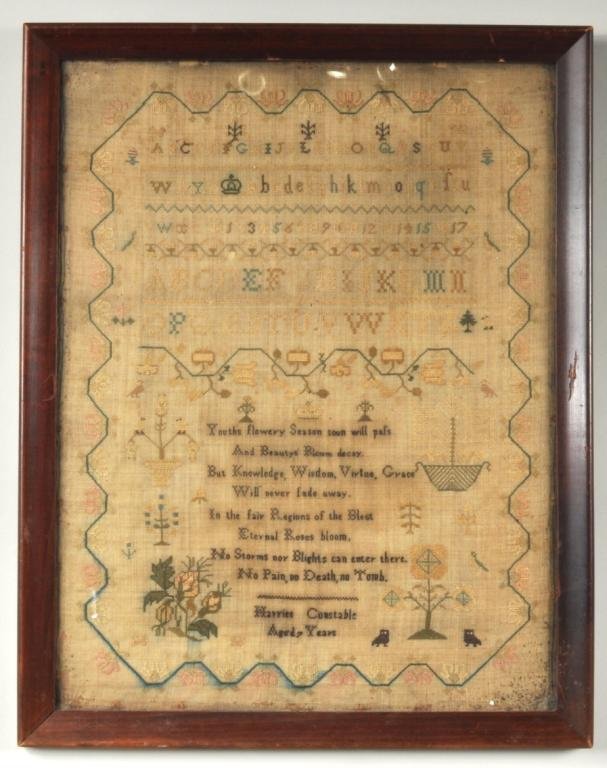 A C G I J L O Q S U
W Y b d e h k m o q ſ u
W 1 3 5 6 9 12 14 15 17
A B C D E F I K M N
P V W
Youths flowery Season soon will paſs
And Beautys Bloom decay.
But Knowledge, Wisdom, Virtue, Grace
Will never fade away.
In the fair Regions of the Blest
Eternal Roses bloom,
No Storms nor Blights can enter there.
No Pain, no Death, no Tomb.
Harriet Constable
Aged 7 Years